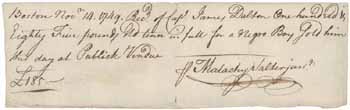 Boston Novr. 14. 1749. Recd. of Capt. James Dalton One hundred &
Eighty Five pounds Old tenor in full for a Negro Boy Sold him
this day at Publick Vendue
£185
Malachy Salter junr.